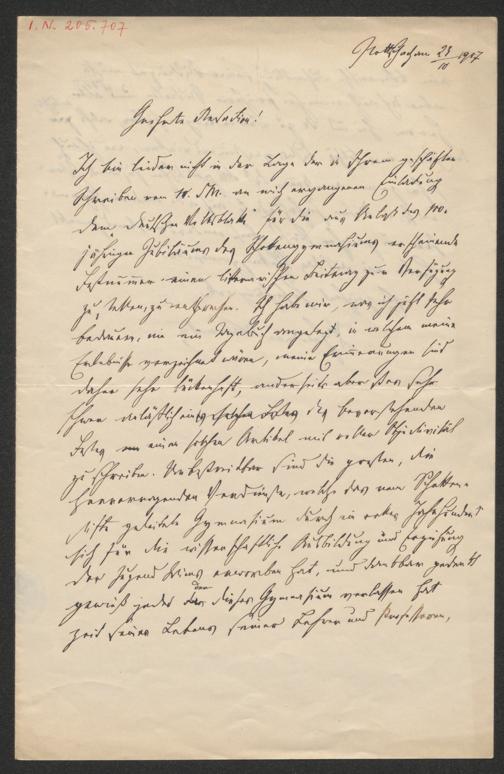 I.N. 205.707
Pottschach 28/10 1907
Geehrte Redaktion!
Ich bin leider nicht in der Lage der in Ihrem geschätzten
Schreiben vom 18. d.M. an mich ergangenen Einladung
dem „Deutschen Volksblatt" für die aus Anlaß des 100-
jährigen Jubiläums des Schottengymnasiums erscheinende
Festnummer einen literarischen Beitrag zur Verfügung
zu stellen, zu entsprechen. Ich habe mir, was ich jetzt sehr
bedaure, nie ein Tagebuch angelegt, in welchem meine
Erlebnisse verzeichnet wären, meine Erinnerungen sind
daher sehr lückenhaft, anderseits aber ist es sehr
des bevorstehenden
Festes einen solchen Artikel mit voller Objektivität
zu schreiben. Unbestreitbar sind die großen, die
hervorragenden Verdienste, welche das vom Schotten-
stifte geleitete Gymnasium durch ein volles Jahrhundert
sich für die wissenschaftliche Ausbildung und Erziehung
der Jugend Wiens erworben hat, und dankbar gedenkt
gewiß jeder der dieses Gymnasium verlassen hat
Zeit seines Lebens seiner Lehrer und Professoren,